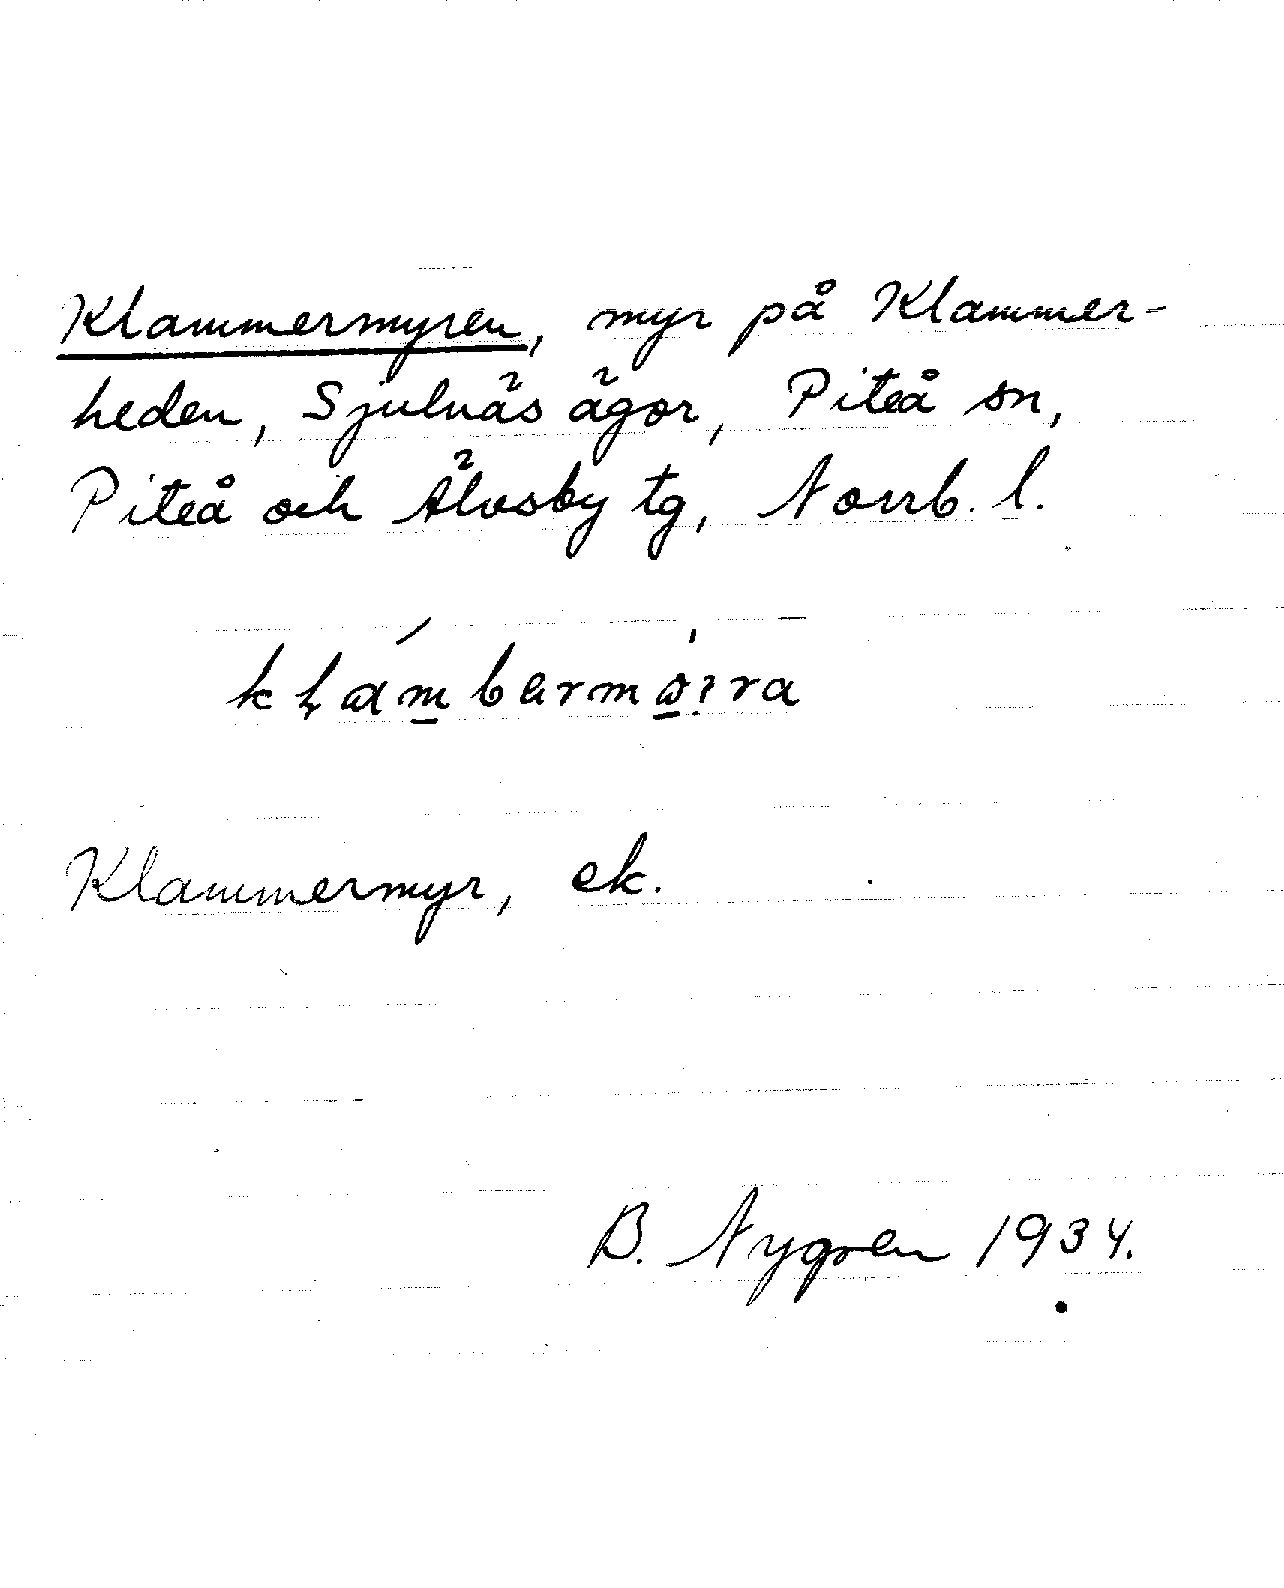 Klammermyren, myr på Klammer-
heden, Sjulnäs ägor, Piteå sn,
Piteå och Älvsby tg, Norrb. l.
Klammermyr, ek.
B. Nygren 1934.